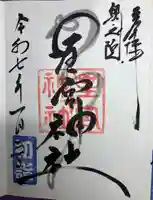 奥之院
星宮神社
令和七年一月
初詣